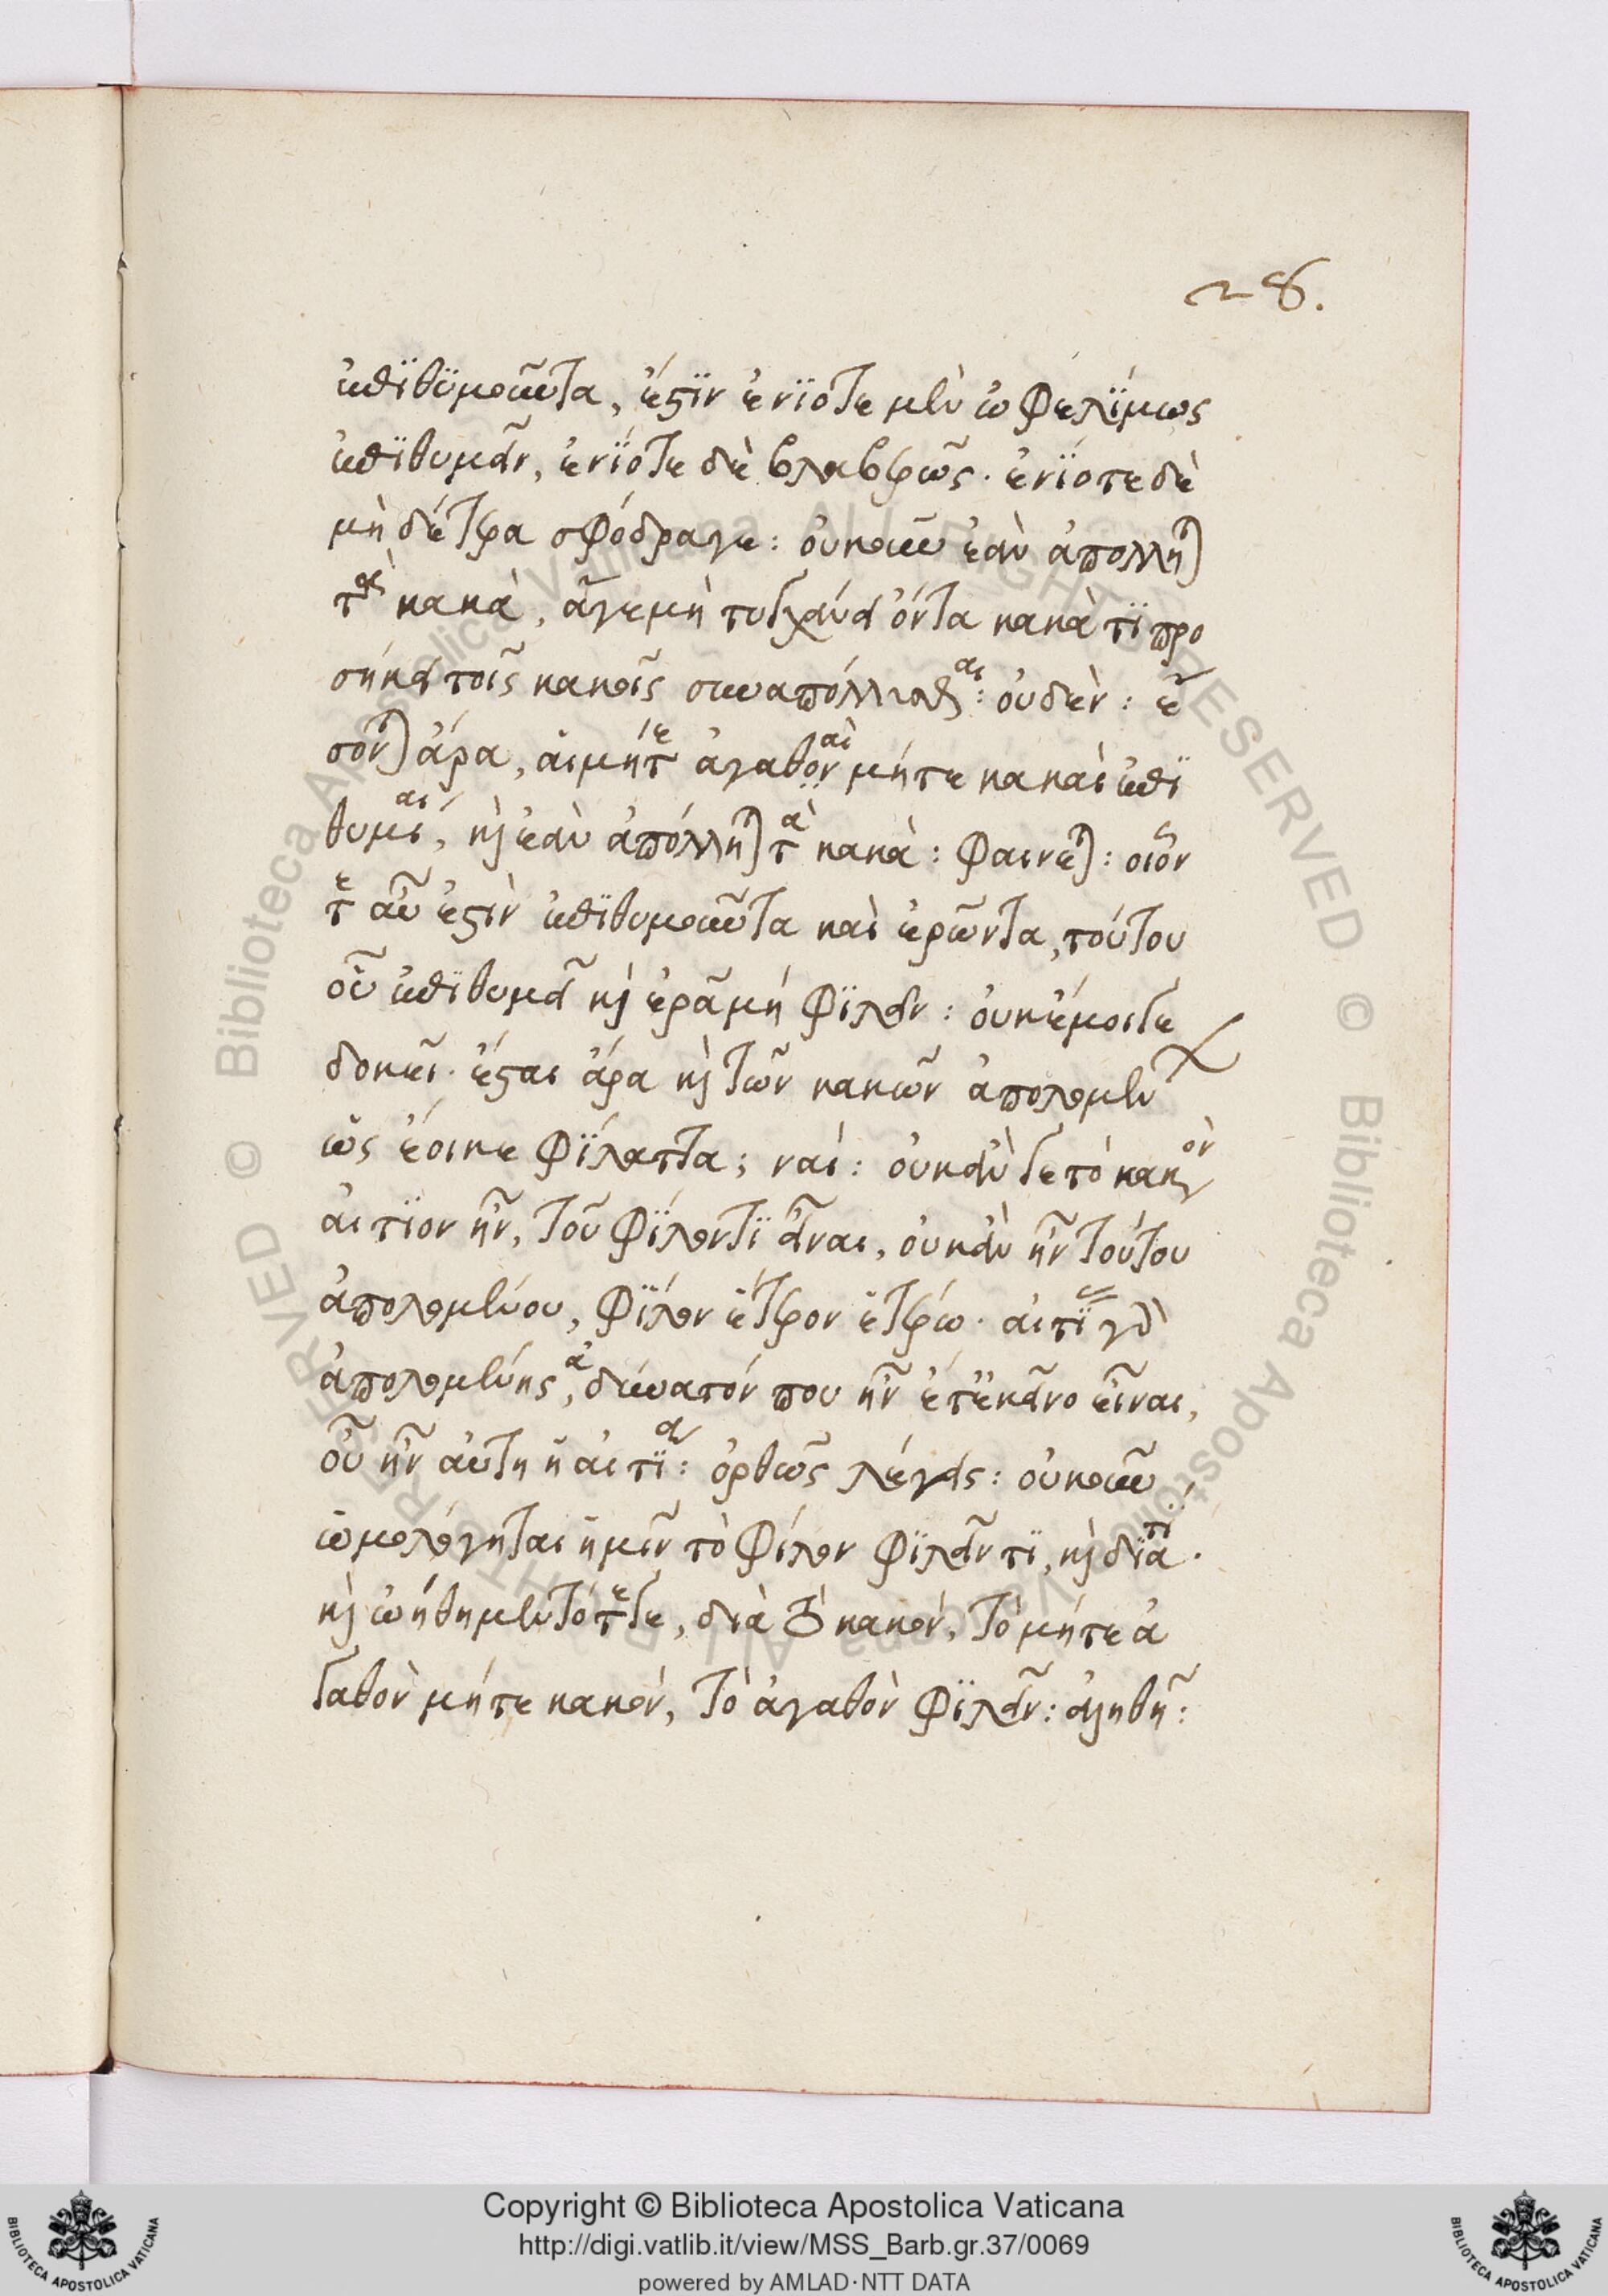 28.
ἐπϊθϋμοῦντα, ἔςϊν ἐνϊοτε μὲν ὠφελΐμως
ἐπϊθυμεῖν, ἐνΐοτε δὲ βλαβερῶς. ἐνΐοτε δὲ
μὴ δέτερα σφόδραγε: οὐκοῦν ἐὰν ἀπολλῆται
τὰ κακὰ, ἅγε μὴ τυγχάνει ὄντα κακὰ τΐ προ
σήκει τοῖς κακοῖς συναπόλλυσθαι: οὐδέν: ἔ
σονται ἄρα, αἱ μήτε ἀγαθαὶ μήτε κακαὶ ἐπϊ
θυμίαι, καὶ ἐὰν ἀπόλληται τὰ κακὰ: φαινεται: οἷόν
τε οὖν ἐςὶν ἐπϊθυμοῦντα καὶ ἐρῶντα, τούτου
οὗ ἐπϊθυμεῖ καὶ ἐρᾶ μή φϊλεῖν: οὐκ ἔμοιγε
δοκεῖ. ἔςαι ἄρα καὶ τῶν κακῶν ἀπολομεν
ὡς ἔοικε φΐλαττα; ναί: οὐκ ἂν γε τὸ κακὸν
αἴτϊον ἦν, τοῦ φΐλον τϊ εἶναι, οὐκ ἂν ἦν τούτου
ἀπολομένου, φΐλον ἕτερον ἑτέρω. αἰτίας γὰρ
ἀπολομένης, ἀδύνατόν που ἦν ἔτ' ἐκεῖνο εἶναι,
οὗ ἦν αὕτη ἡ αἰτία: ὀρθῶς λέγεις: οὐκοῦν
ὡμολόγηται ἡμῖν τὸ φίλον φϊλεῖν τϊ, καὶ δϊάτι.
καὶ ὠήθημεν τότε γε, διὰ τὸ κακόν, τὸ μήτε ἀ
γαθὸν μήτε κακόν, τὸ ἀγαθὸν φϊλεῖν: ἀληθῆ:
Copyright © Biblioteca Apostolica Vaticana
http://digi.vatlib.it/view/MSS_Barb.gr.37/0069
powered by AMLAD·NTT DATA